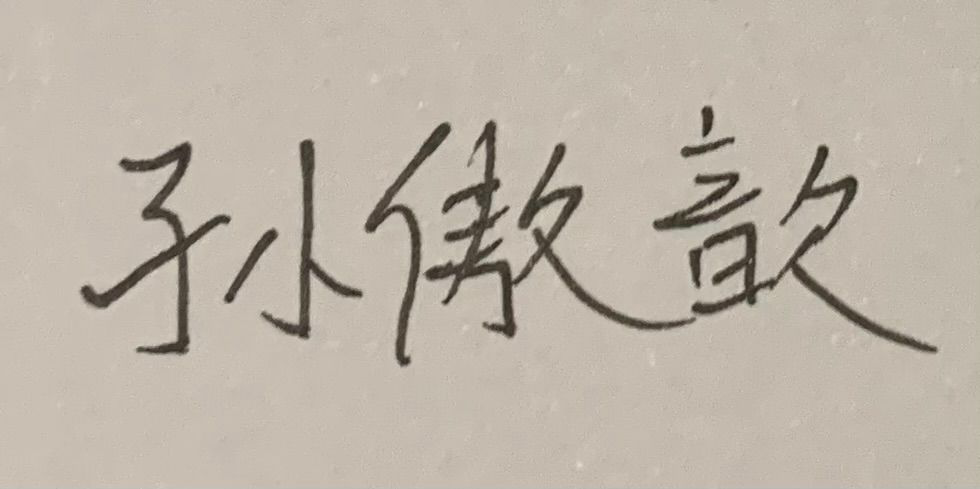 孙傲歆